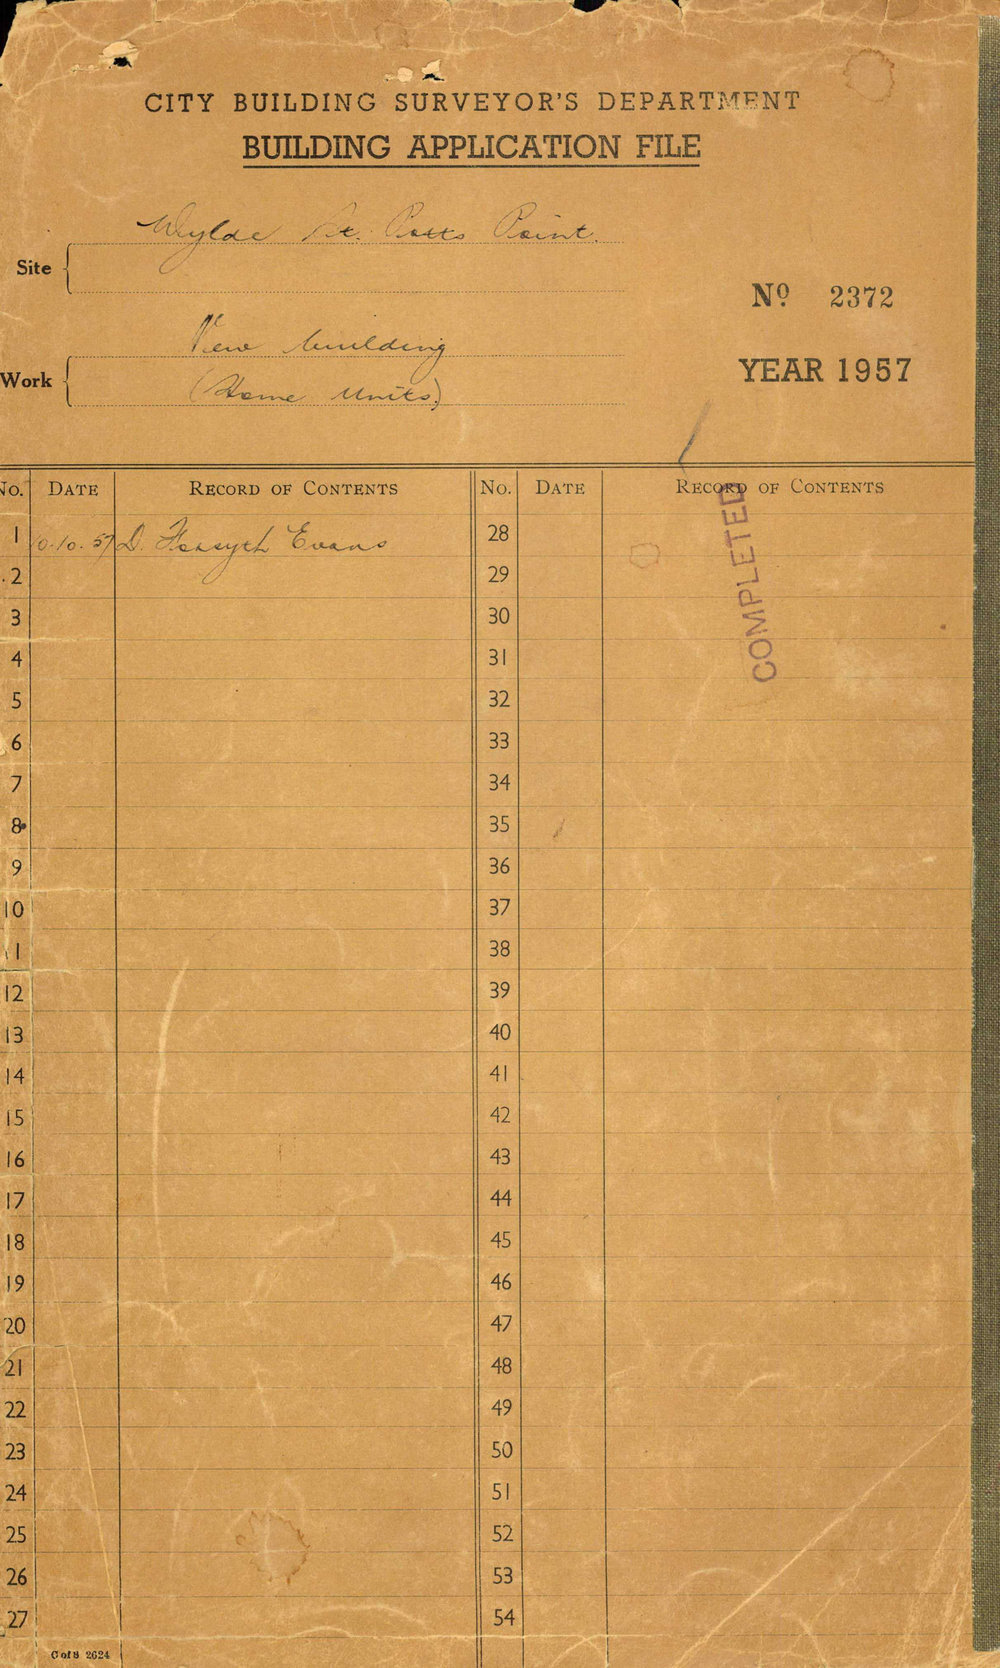 CITY BUILDING SURVEYOR'S DEPARTMENT
BUILDING APPLICATION FILE
Site
Wylde St. Potts Point.
Nº 2372
Work
New building
(Home Units)
YEAR 1957
No. DATE RECORD OF CONTENTS No. DATE RECORD OF CONTENTS
COMPLETED
1 10.10.57 D. Forsyth Evans 28
2 29
3 30
4 31
5 32
6 33
7 34
8 35
9 36
10 37
11 38
12 39
13 40
14 41
15 42
16 43
17 44
18 45
19 46
20 47
21 48
22 49
23 50
24 51
25 52
26 53
27 54
C of S 2624